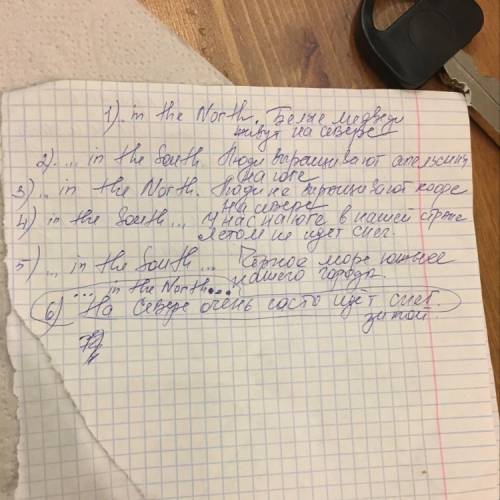 1). in the North. Белые медведи
живут на севере
2). ... in the South. Люди выращивают апельсины
на юге
3) ... in the North. Люди не выращивают кофе
на севере
4) in the South... У нас на юге в нашей стране
летом не идет снег.
5) ... in the South... Черное море южнее
нашего города.
... in the North...
6) На севере очень часто идёт снег
зимой.